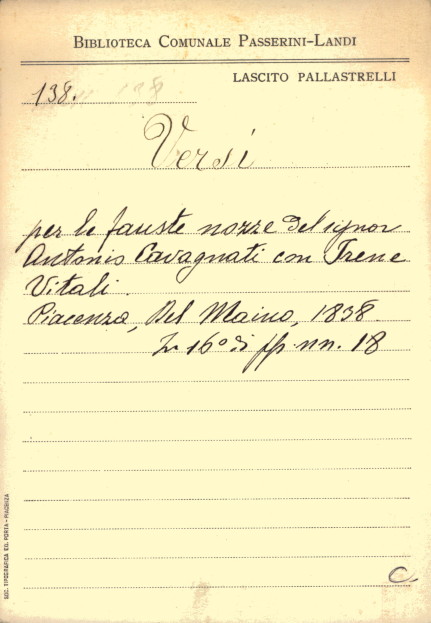 BIBLIOTECA COMUNALE PASSERINI-LANDI
LASCITO PALLASTRELLI
138.
Versi
per le fauste nozze del signor
Antonio Cavagnati con Irene
Vitali.
Piacenza, Del Maino, 1838.
In 16° di pp. nn. 18
C.
SOC. TIPOGRAFICA ED. PORTA - PIACENZA